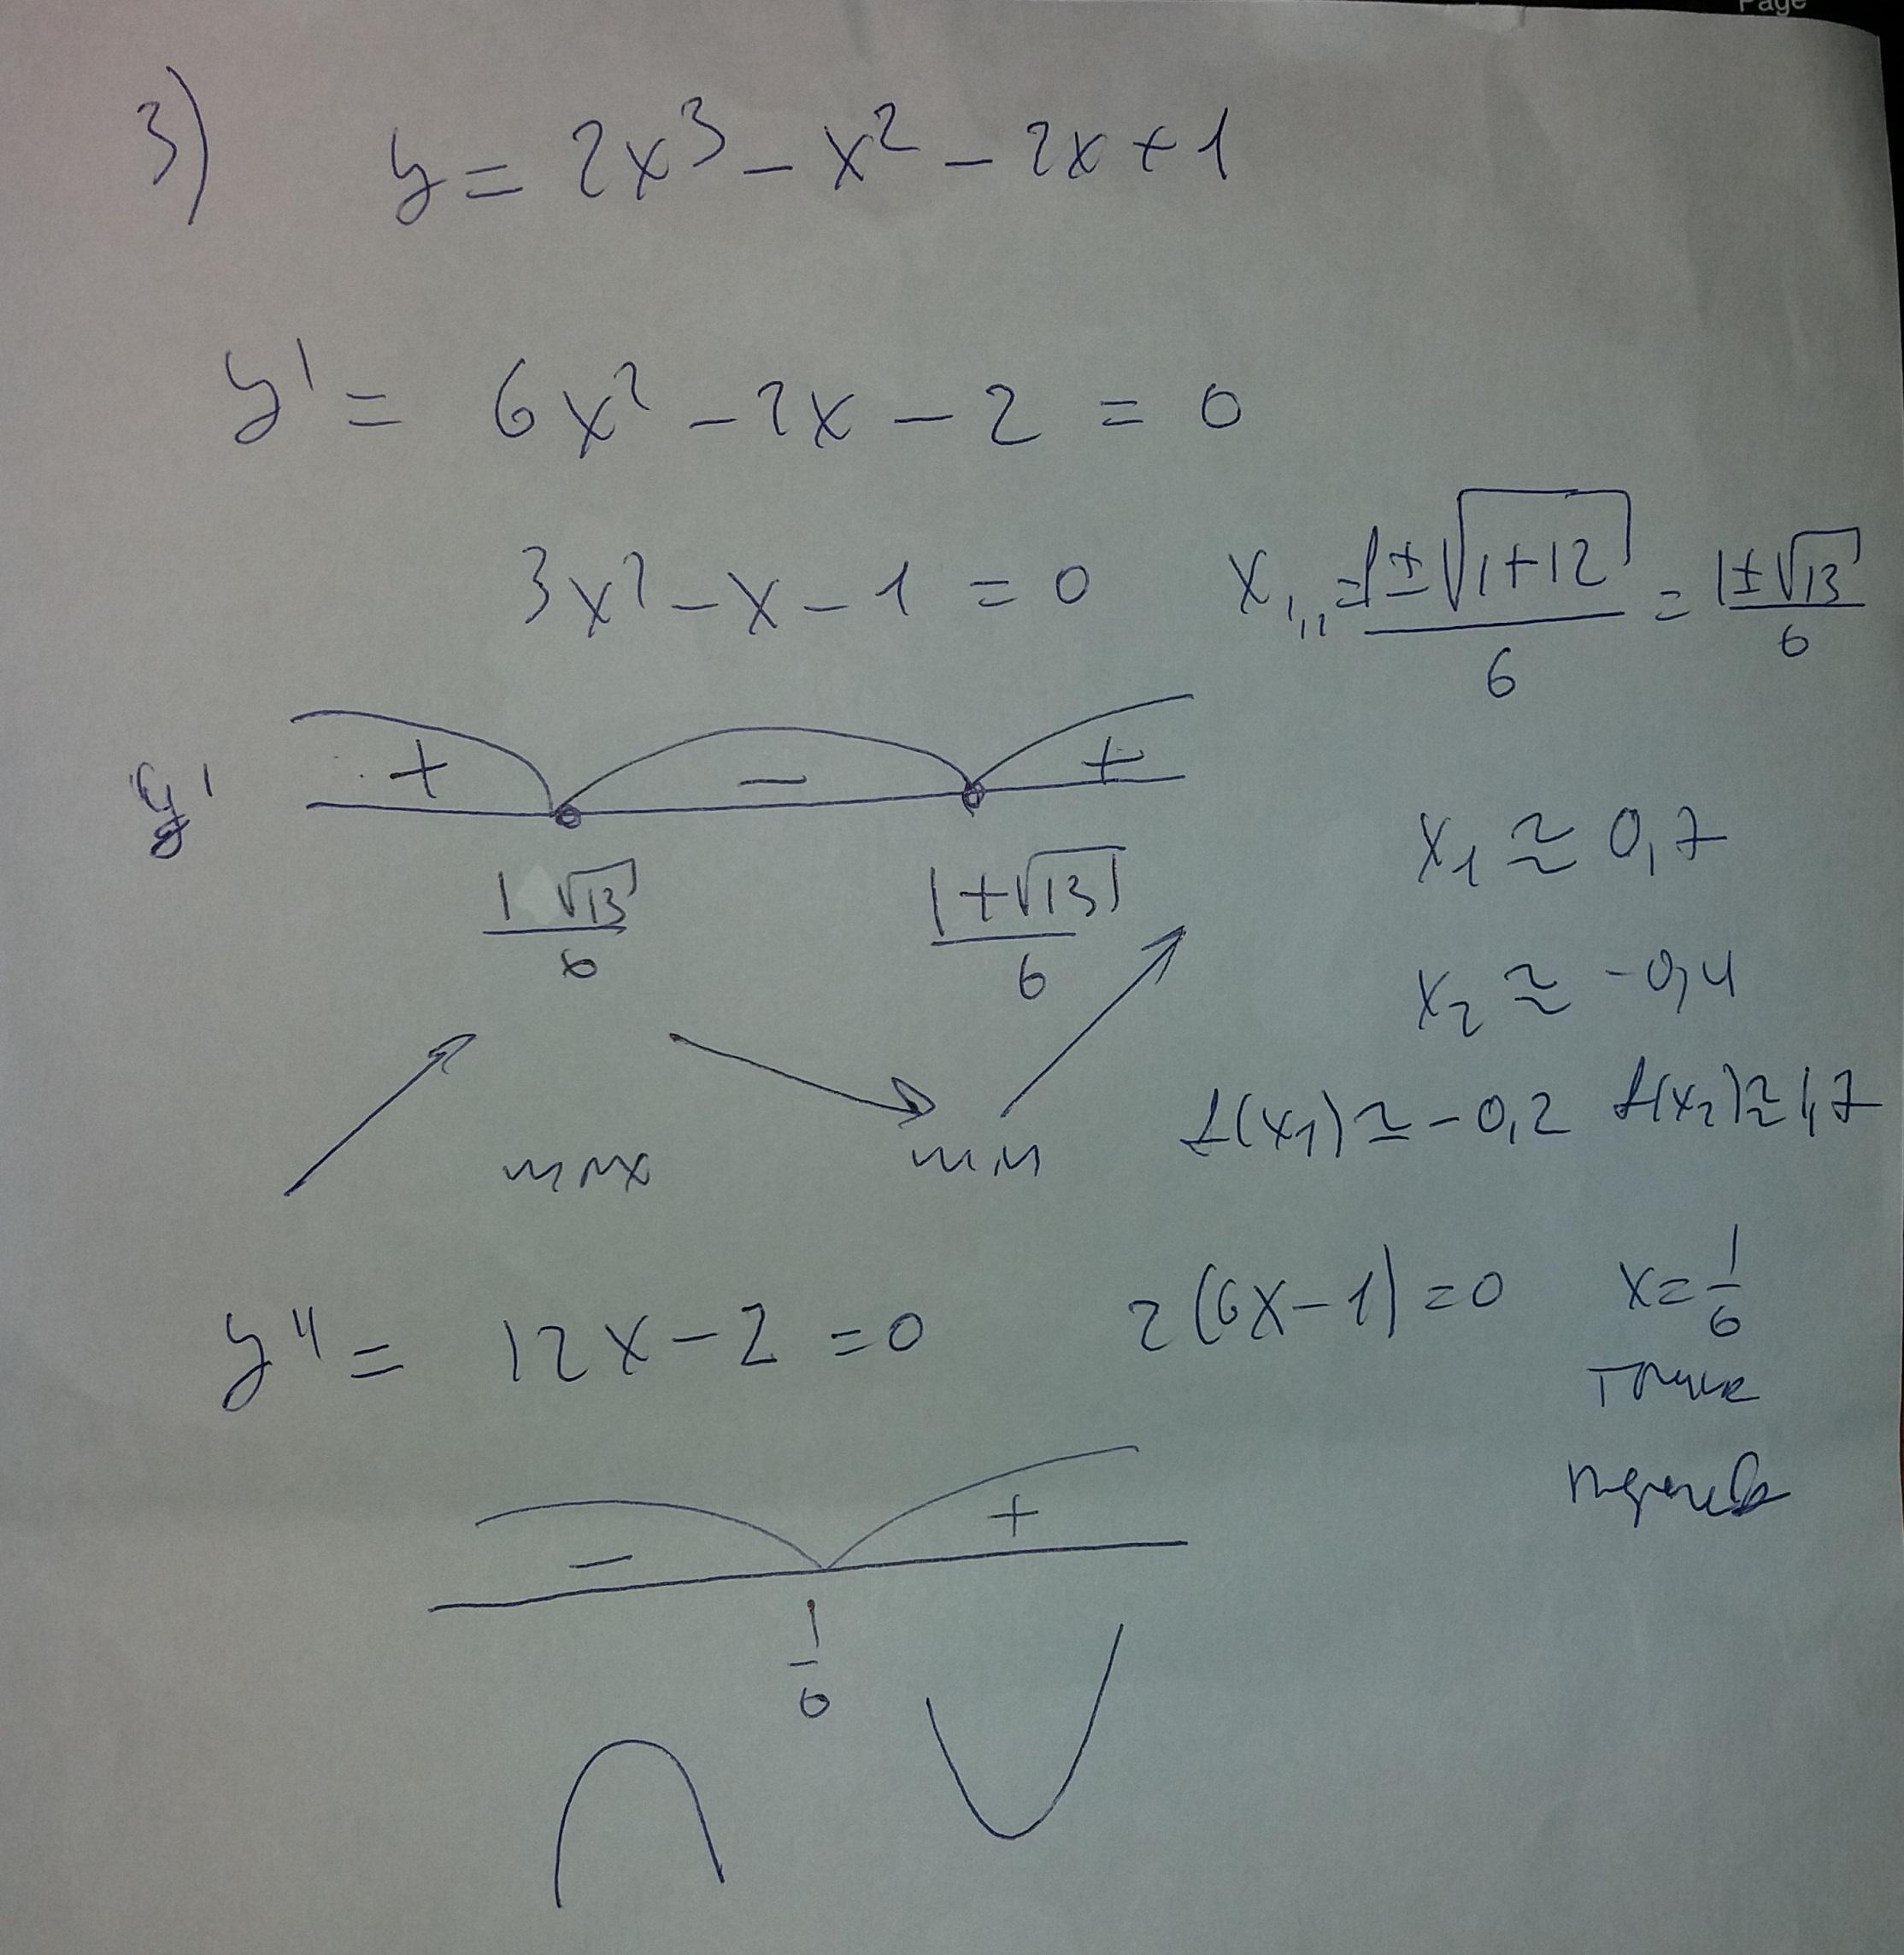 Page
3) y = 2x³ - x² - 2x + 1
y' = 6x² - 2x - 2 = 0
3x² - x - 1 = 0 x₁,₂ = (1 ± √(1+12))/6 = (1 ± √13)/6
y' + - +
(1 √13)/6 (1+√13)/6
x₁ ≈ 0,7
x₂ ≈ -0,4
f(x₁) ≈ -0,2 f(x₂) ≈ 1,7
max min
y'' = 12x - 2 = 0 2(6x - 1) = 0 x = 1/6
точка
перегиба
- +
1/6